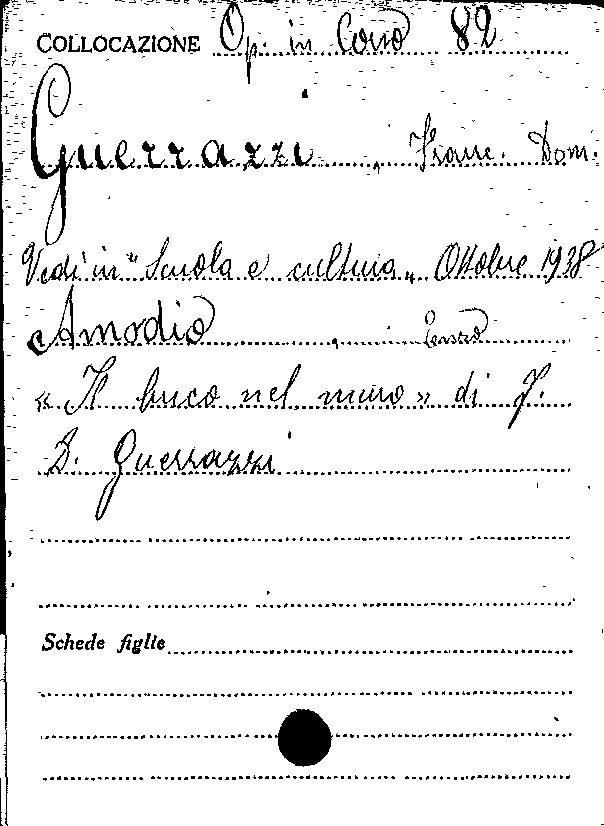 COLLOCAZIONE Op. in Corso 82
Guerrazzi, Franc. Dom.
Vedi in "Scuola e cultura„ Ottobre 1938
Amodio, Enzo
« Il buco nel muro » di F.
D. Guerrazzi
Schede figlie